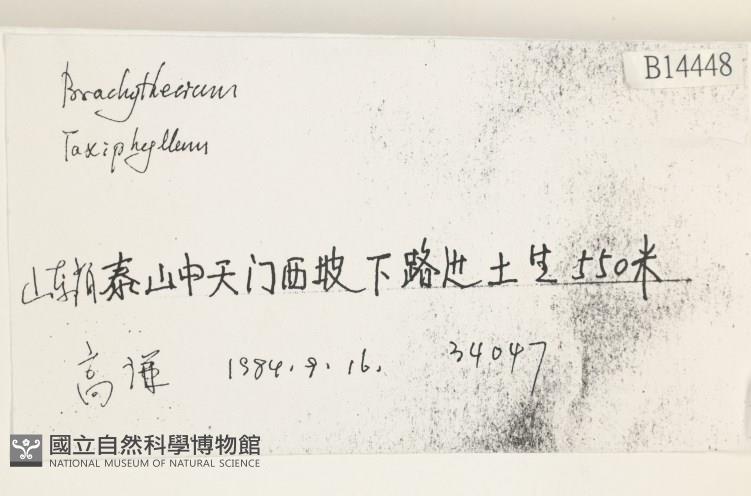 B14448
Brachythecium
Taxiphyllum
山东省泰山中天门西坡下路边土生550米
高谦 1984.9.16. 34047
國立自然科學博物館
NATIONAL MUSEUM OF NATURAL SCIENCE